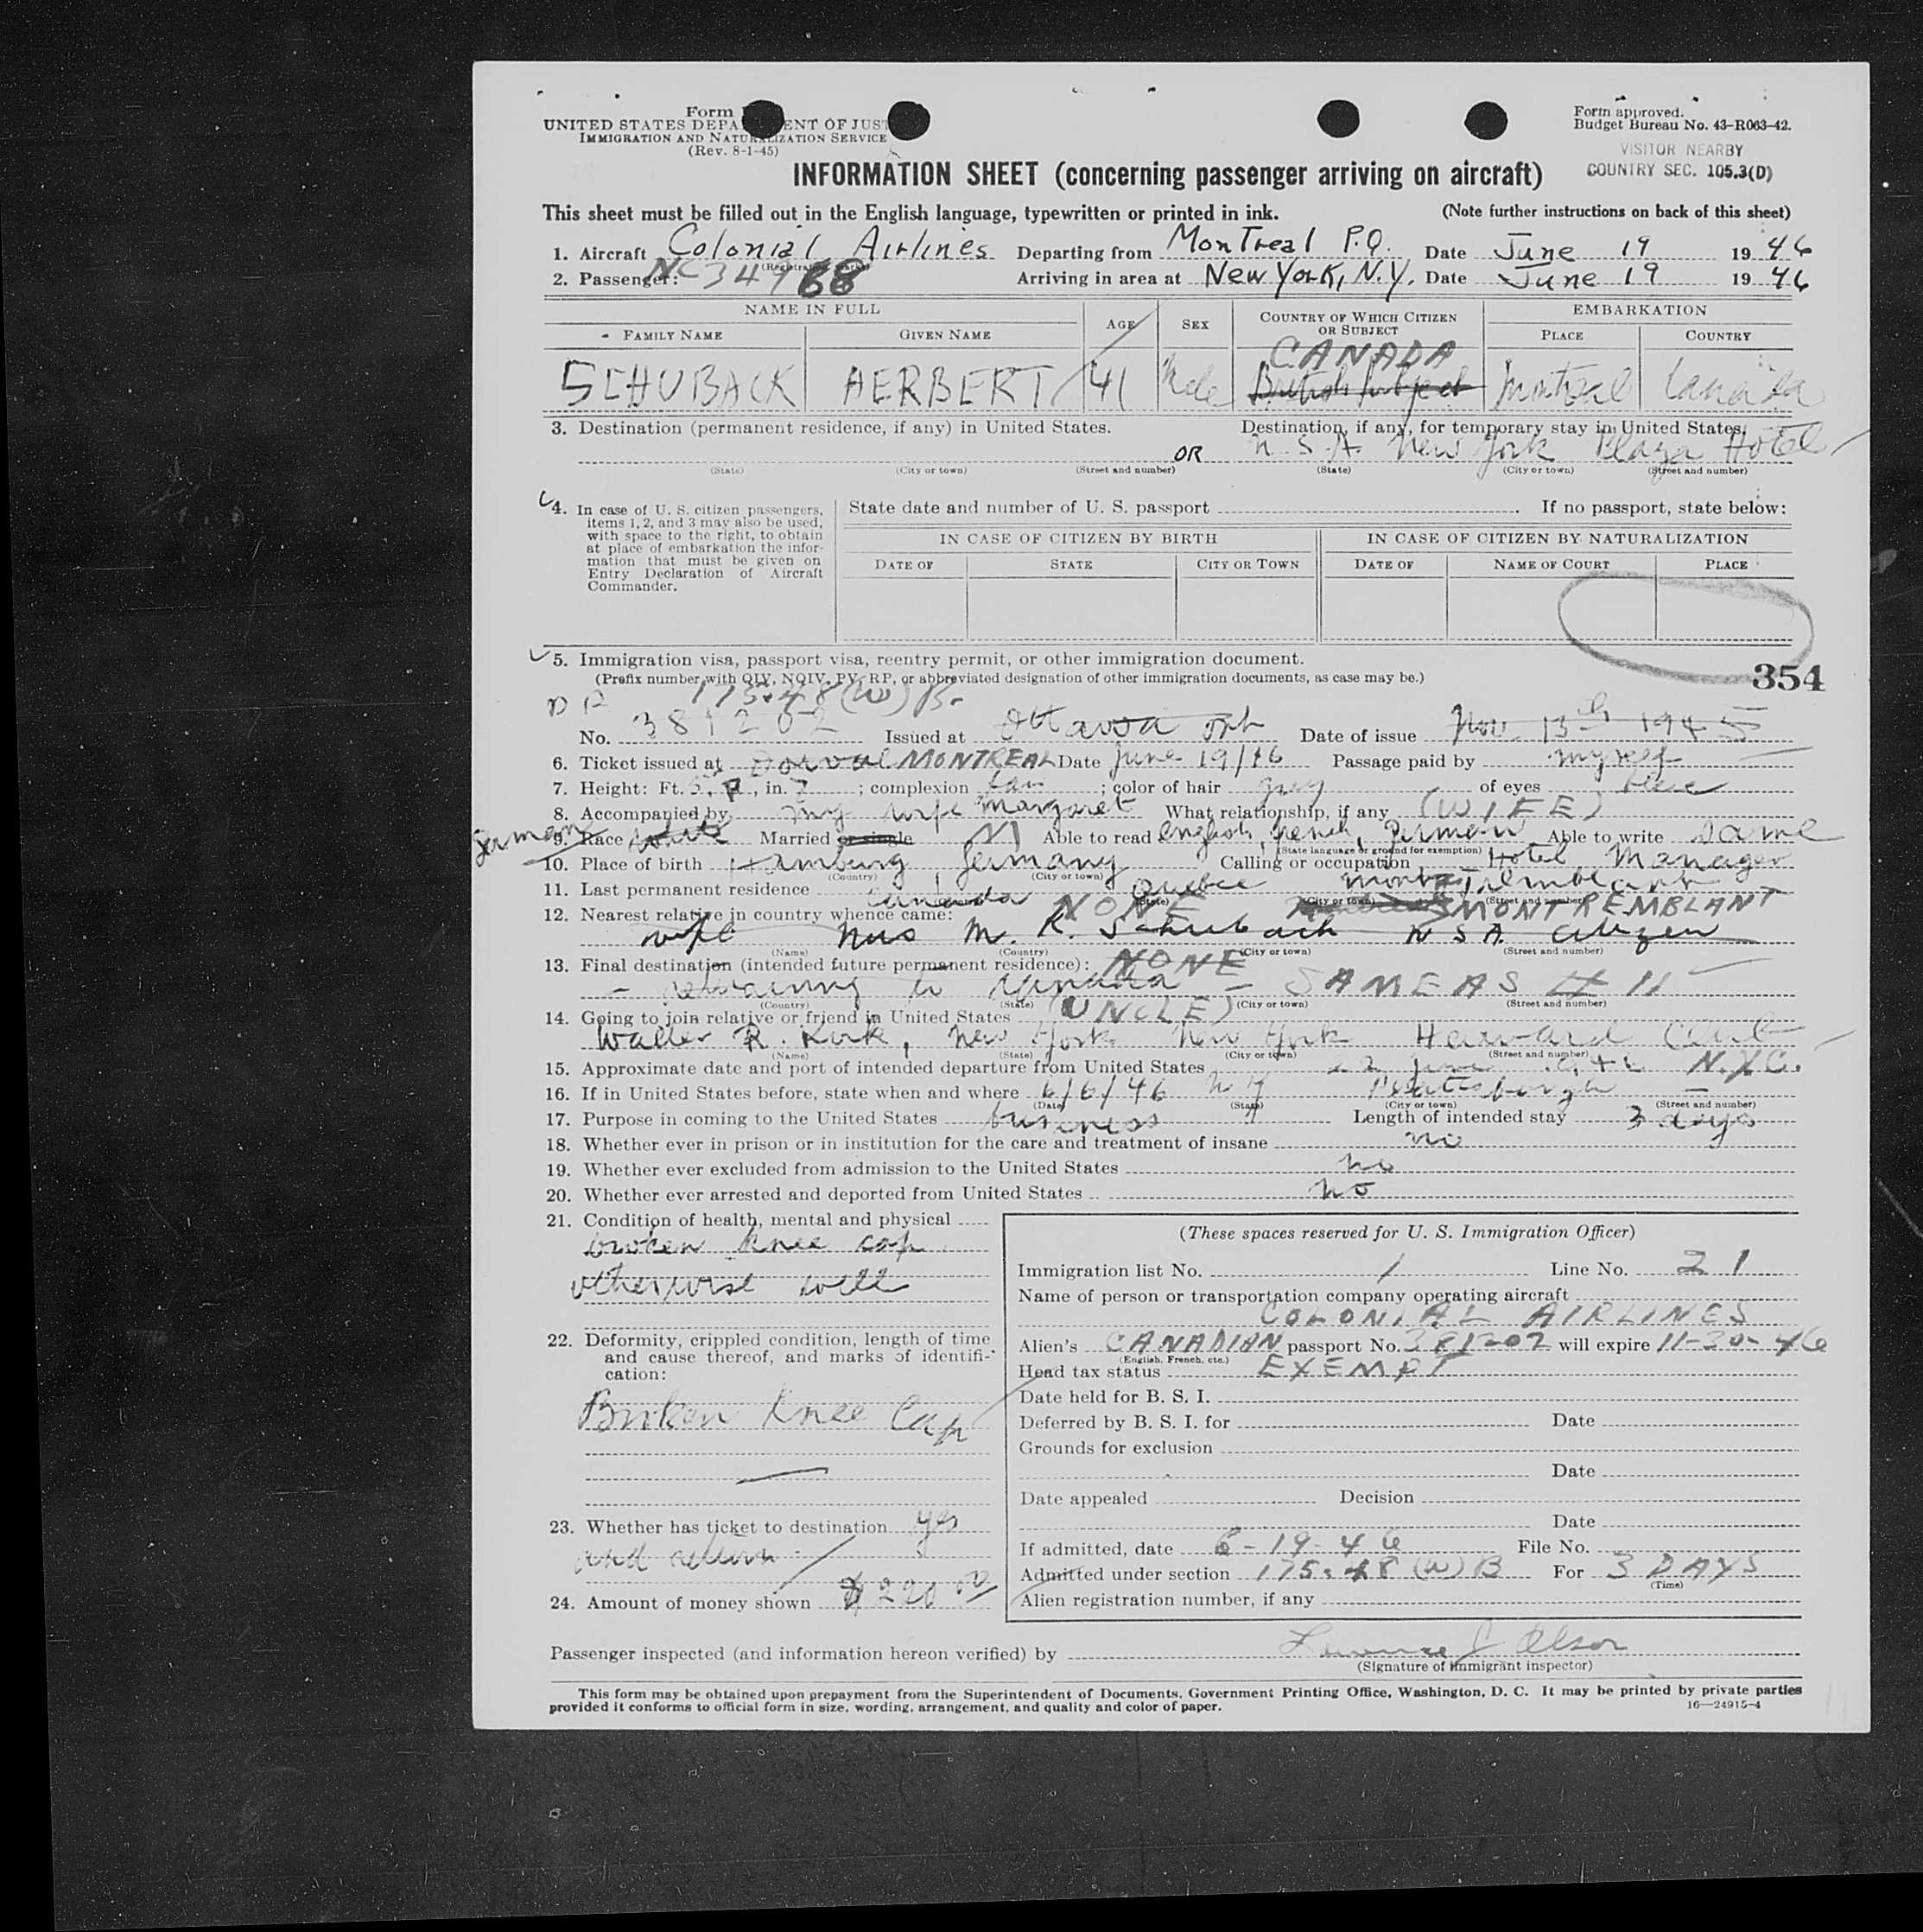 Form
UNITED STATES DEPA ENT OF JUST
IMMIGRATION AND NATURALIZATION SERVICE
(Rev. 8-1-45)
Form approved.
Budget Bureau No. 43-R063-42.
VISITOR NEARBY
COUNTRY SEC. 105.3(D)
INFORMATION SHEET (concerning passenger arriving on aircraft)
This sheet must be filled out in the English language, typewritten or printed in ink. (Note further instructions on back of this sheet)
1. Aircraft Colonial Airlines Departing from Montreal P.Q. Date June 19 1946
2. Passenger: NC 34988 Arriving in area at New York, N.Y. Date June 19 1946
NAME IN FULL AGE SEX COUNTRY OF WHICH CITIZEN OR SUBJECT EMBARKATION
FAMILY NAME GIVEN NAME PLACE COUNTRY
CANADA
SCHUBACK HERBERT 41 Male British subject Montreal Canada
3. Destination (permanent residence, if any) in United States. Destination, if any, for temporary stay in United States.
OR U.S.A. New York Plaza Hotel
(State) (City or town) (Street and number) (State) (City or town) (Street and number)
4. In case of U. S. citizen passengers, items 1, 2, and 3 may also be used, with space to the right, to obtain at place of embarkation the information that must be given on Entry Declaration of Aircraft Commander.
State date and number of U. S. passport. If no passport, state below:
IN CASE OF CITIZEN BY BIRTH IN CASE OF CITIZEN BY NATURALIZATION
DATE OF STATE CITY OR TOWN DATE OF NAME OF COURT PLACE
5. Immigration visa, passport visa, reentry permit, or other immigration document.
(Prefix number with QIV, NQIV, PV, RP, or abbreviated designation of other immigration documents, as case may be.)
354
175.48 (W) B.
No. 381202 Issued at Ottawa Ont Date of issue Nov. 13th 1945
6. Ticket issued at Dorval MONTREAL Date June 19/46 Passage paid by myself
7. Height: Ft. 5, in. 7; complexion fair; color of hair grey of eyes blue
8. Accompanied by my wife Margaret What relationship, if any (WIFE)
German
9. Race white Married or single M Able to read English, French, German Able to write same
(State language or ground for exemption)
10. Place of birth Hamburg, Germany Calling or occupation Hotel Manager
(Country) (City or town)
11. Last permanent residence Canada Quebec Mont Tremblant
(State) (City or town) (Street and number)
12. Nearest relative in country whence came: NONE MONT TREMBLANT
wife Mrs M. K. Schuback U S A. citizen
(Name) (Country) (City or town) (Street and number)
13. Final destination (intended future permanent residence): NONE
- returning to Canada - SAME AS # 11
(Country) (State) (City or town) (Street and number)
14. Going to join relative or friend in United States (UNCLE)
Walter R. Kirk, New York New York Harvard Club
(Name) (State) (City or town) (Street and number)
15. Approximate date and port of intended departure from United States 22 June 1946 N.Y.C.
16. If in United States before, state when and where 6/6/46 N Y Plattsburgh
(Date) (State) (City or town) (Street and number)
17. Purpose in coming to the United States business Length of intended stay 3 days
18. Whether ever in prison or in institution for the care and treatment of insane no
19. Whether ever excluded from admission to the United States no
20. Whether ever arrested and deported from United States no
21. Condition of health, mental and physical
broken knee cap
otherwise well
22. Deformity, crippled condition, length of time and cause thereof, and marks of identification:
Broken Knee Cap
23. Whether has ticket to destination yes
and return.
24. Amount of money shown $220 00
(These spaces reserved for U. S. Immigration Officer)
Immigration list No. 1 Line No. 21
Name of person or transportation company operating aircraft
COLONIAL AIRLINES
Alien's CANADIAN passport No. 381202 will expire 11-30-46
(English, French, etc.)
Head tax status EXEMPT
Date held for B. S. I.
Deferred by B. S. I. for Date
Grounds for exclusion
Date
Date appealed Decision
Date
If admitted, date 6-19-46 File No.
Admitted under section 175.48 (W) B For 3 DAYS
(Time)
Alien registration number, if any
Passenger inspected (and information hereon verified) by Lawrence J Olson
(Signature of immigrant inspector)
This form may be obtained upon prepayment from the Superintendent of Documents, Government Printing Office, Washington, D. C. It may be printed by private parties
provided it conforms to official form in size, wording, arrangement, and quality and color of paper. 16—24915-4